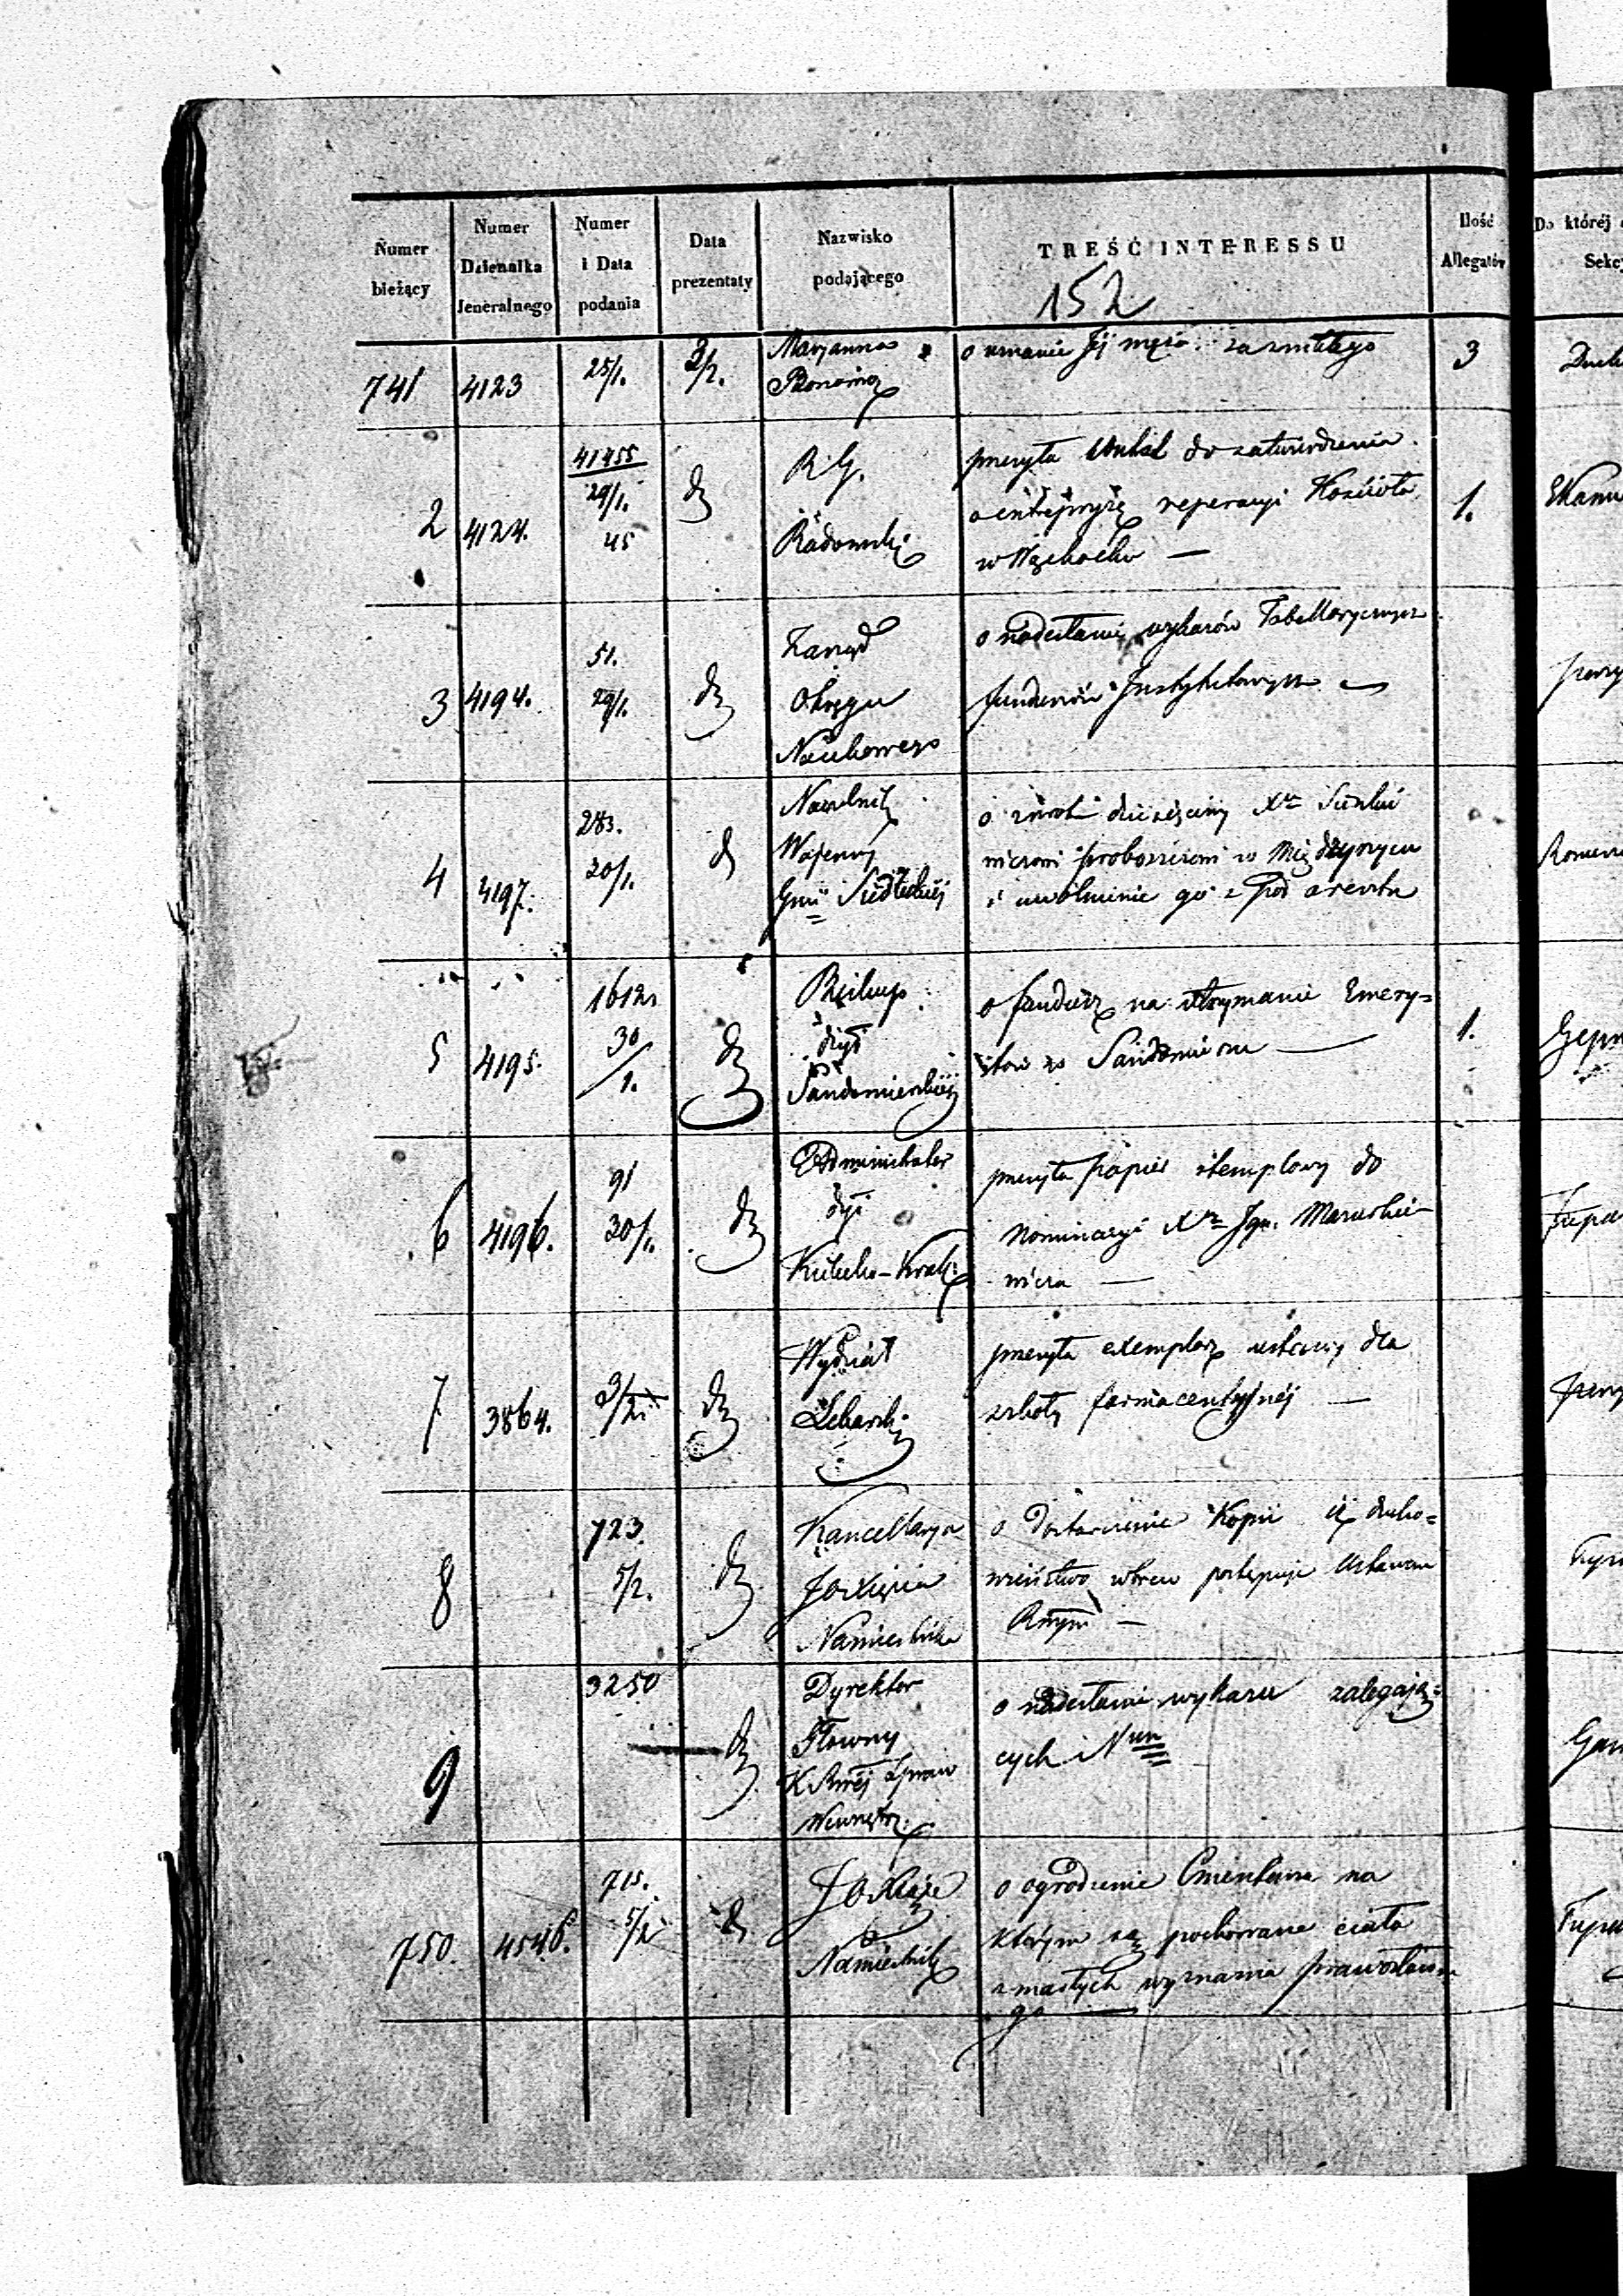 Numer bieżący
Numer Dziennika Jeneralnego
Numer i Data podania
Data prezentaty
Nazwisko podającego
TREŚĆ INTERESSU
Ilość Allegatów
Do której
Sekcy
152
741 4123 25/1. 3/2. Maryanna o uznanie Jej męża za zmarłego 3
2 4124. 41455 29/1. 45 R. G. Radomski
przesyła do zatwierdzenia
o entrepryzę reperacyi Kościoła 1.
w Wąchocku —
3 4194. 51. 29/1. Zarząd Okręgu Naukowego
o nadesłanie wykazów Tabellarycznych
funduszów Instytutowych —
4 4197. 283. 30/1. Naczelnik Wojenny Gnii Siedleckiej
o zwrot dziesięciny Xu
proboszczowi w Międzyrzycu
i uwolnienie go z pod aresztu
5 4195. 1612. 30/1. Biskup dyi Sandomierskiej
o fundusz na utrzymanie Emery=
tów w Sandomierzu — 1.
6 4196. 91 30/1. Administrator dyi Kielecko-Krak:
przesyła papier stemplowy do
nominacyi Xa Ign.
wicza —
7 3864. 3/2. Wydział Lekarski
przesyła exemplarz ustawy dla
szkoły farmaceutycznej —
8 723. 5/2. Kancellarya JOXięcia Namiestnika
o dostarczenie Kopii iż ducho=
wieństwo wbrew postępuje Ustawom
—
9 3250 Dyrektor Główny K Rwéj Spraw Wewnętrz.
o nadesłanie wykazu zalegają=
cych Nrów
750. 4546. 715. 5/2 JOXiąże Namiestnik
o ogrodzenie Cmentarza na
którym są pochowane ciała
zmarłych wyznania prawosławne
go —